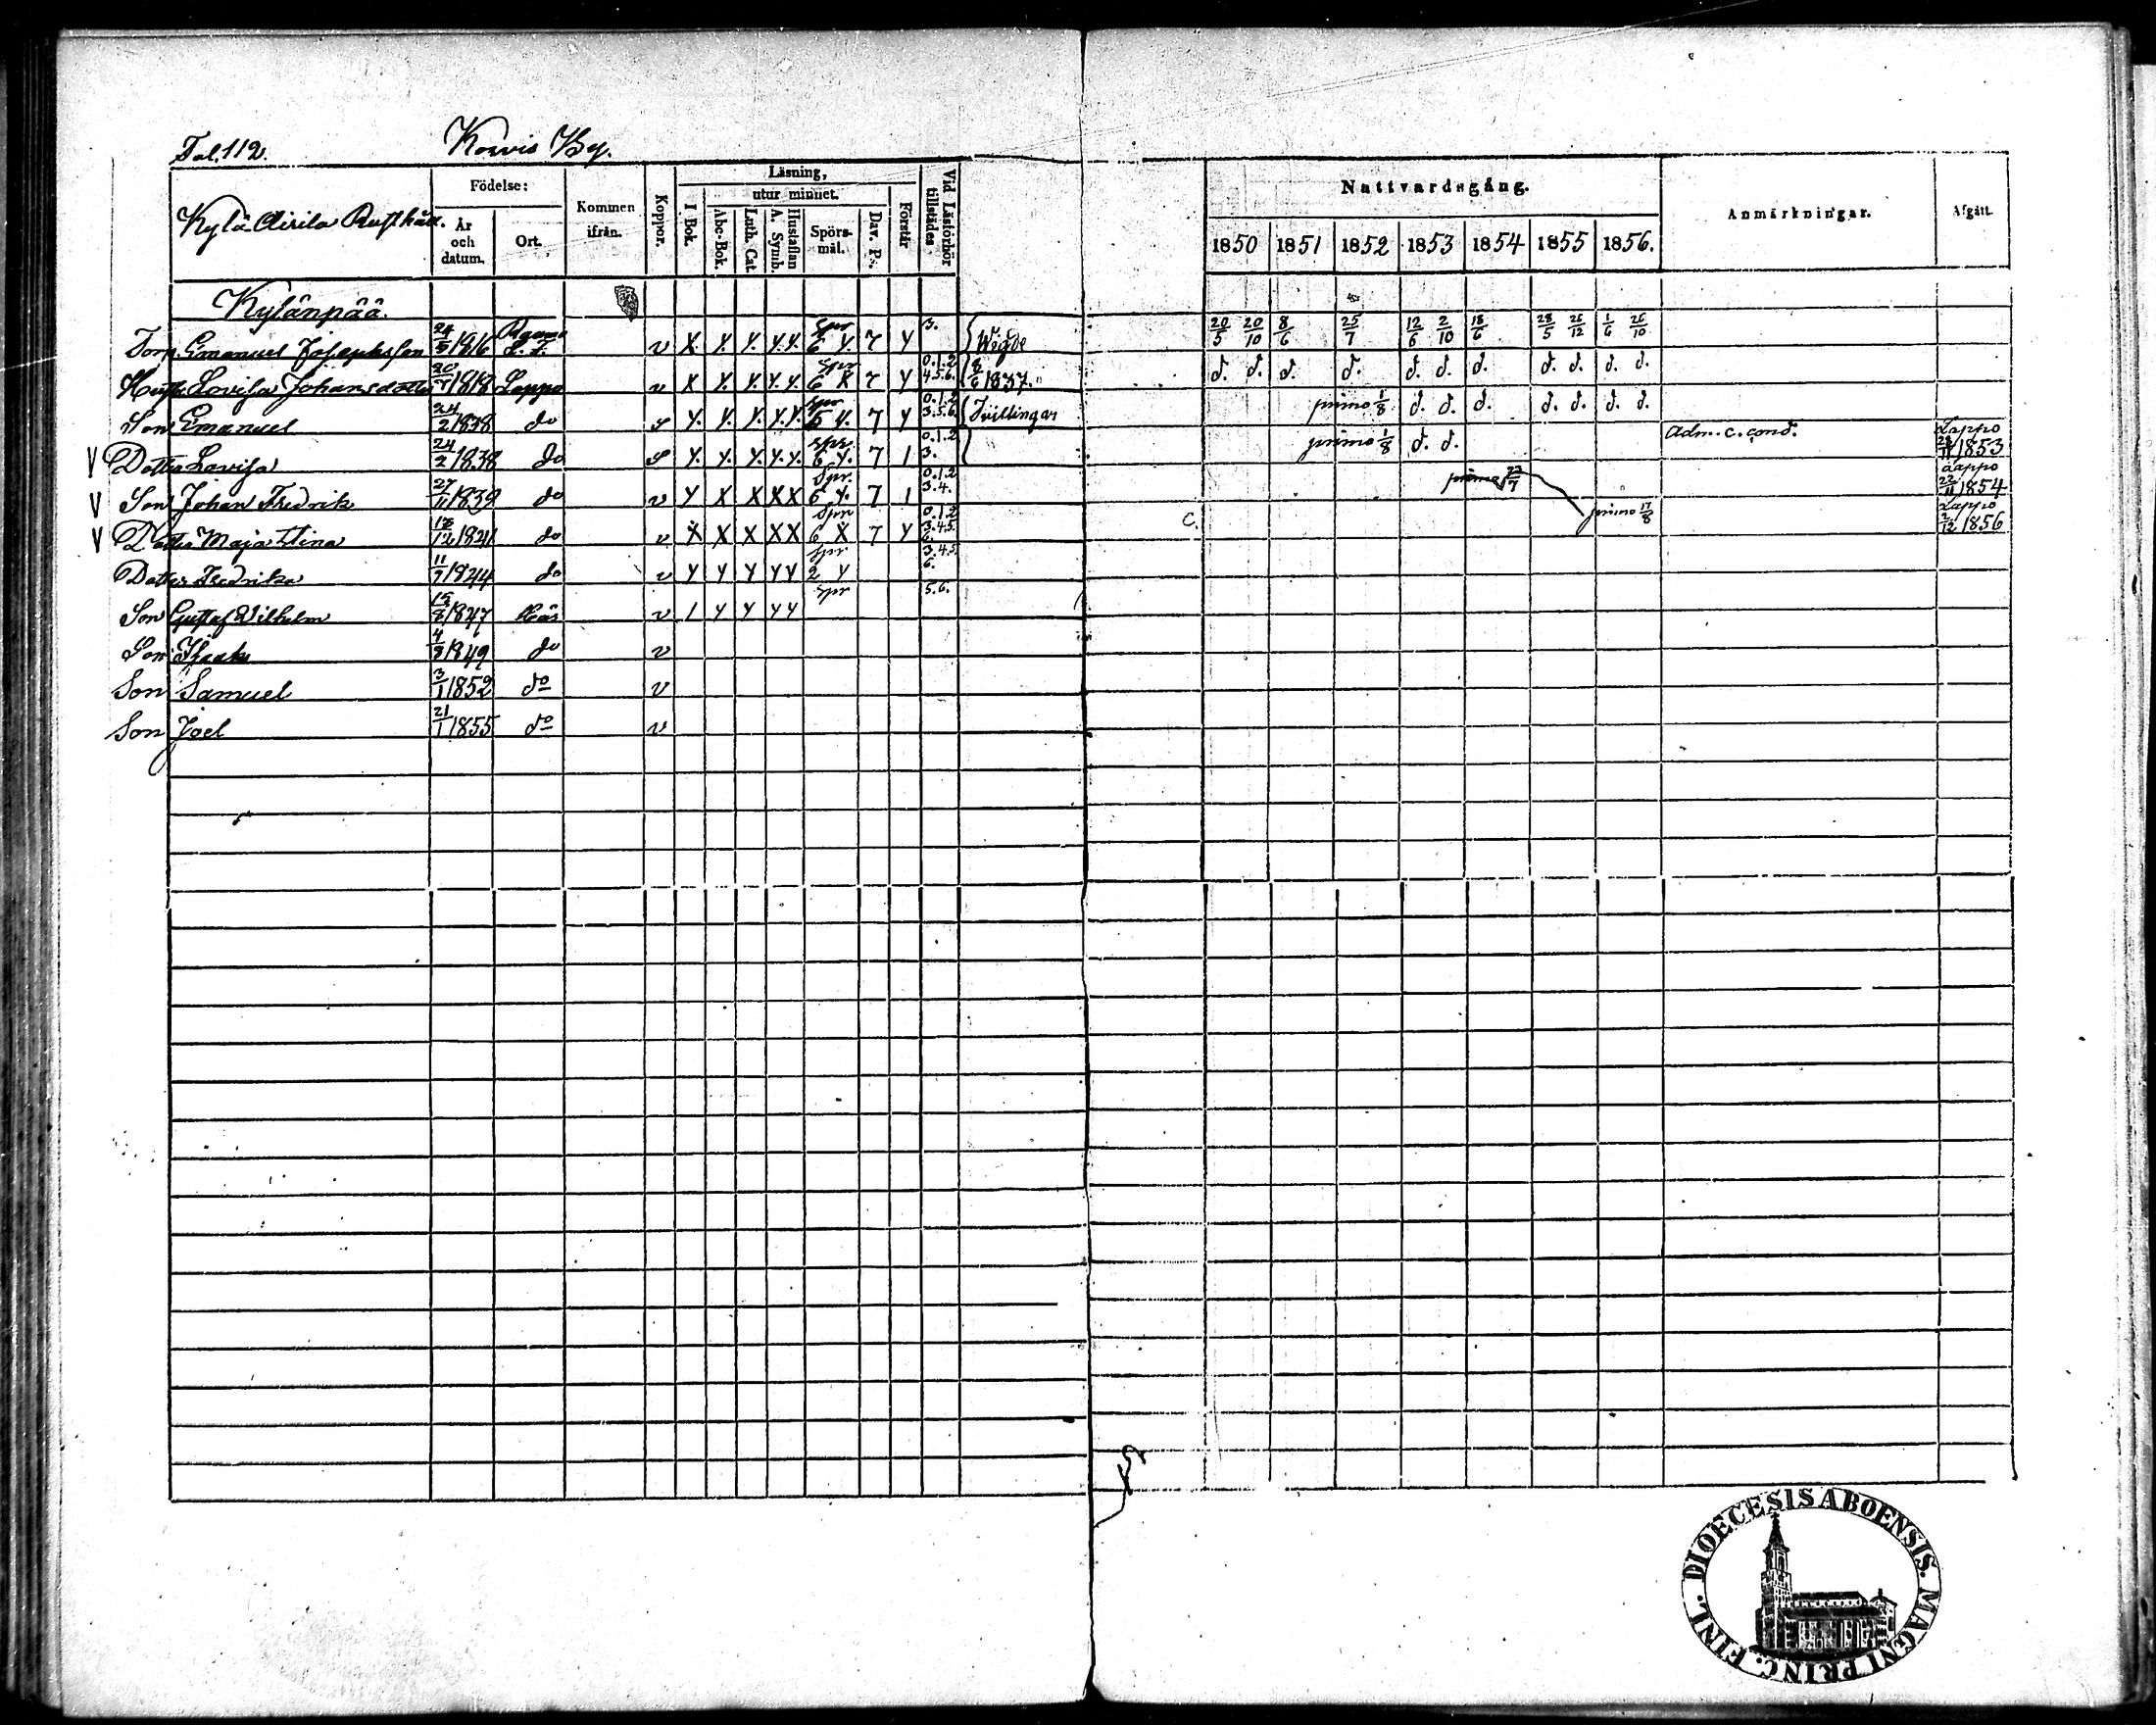 Fol. 112. Korvis By.
Kylä-Airila Rusthåll.
Födelse:
År och datum.
Ort.
Kommen ifrån.
Koppor.
Läsning,
I Bok.
utur minnet.
Abc-Bok.
Luth. Cat.
Hustaflan A. Symb.
Spörsmål.
Dav. Ps.
Förstår
Vid Läsförhör tillstädes
Nattvardsgång.
1850 1851 1852 1853 1854 1855 1856.
Anmärkningar.
Afgått.
Kylänpää.
Torp. Emanuel Josephsson 24/5 1816 v X Y. Y. Y.Y. Spr 6 Y. 7 Y 3. Wigde 20/5 20/10 8/6 25/7 12/6 2/10 18/6 28/5 26/12 1/6 26/10
Hust. Lovisa Johansdotter 1818 Lappo v X Y. Y. Y.Y. Spr 6 X 7 Y 0.1.2 4.5.6. 8/6 1837. d. d. d. d. d. d. d. d. d. d. d.
Son Emanuel 24/2 1838 do Y. Y. Y. Y.Y. Spr 6 Y. 7 Y 0.1.2 3.5.6. Tvillingar primo 1/8 d. d. d. d. d. d. d.
V Dotter Lovisa 24/2 1838 do Y. Y. Y. Y.Y. Spr. 6 Y. 7 1 0.1.2 3. primo 1/8 d. d. Adm. c. cond. Lappo 1853
V Son Johan Fredrik 27/11 1839 do v Y X X XX Spr. 6 Y. 7 1 0.1.2 3.4. primo 23/7 Lappo 1854
V Dotter Maja Stina 1841 do v X X X XX Spr 6 X 7 Y 0.1.2 3.4.5. 6. C. primo 17/8 Lappo 2/12 1856
Dotter Fredrika 1844 do v Y Y Y YY Spr 2 Y 3.4.5. 6.
Son Gustaf Wilhelm 15/8 1847 v 1 Y Y YY Spr 5.6.
Son Isaak 1849 do v
Son Samuel 3/1 1852 do v
Son Joel 21/1 1855 do v
DIOECESIS ABOENSIS. MAGNI PRINC. FINL.